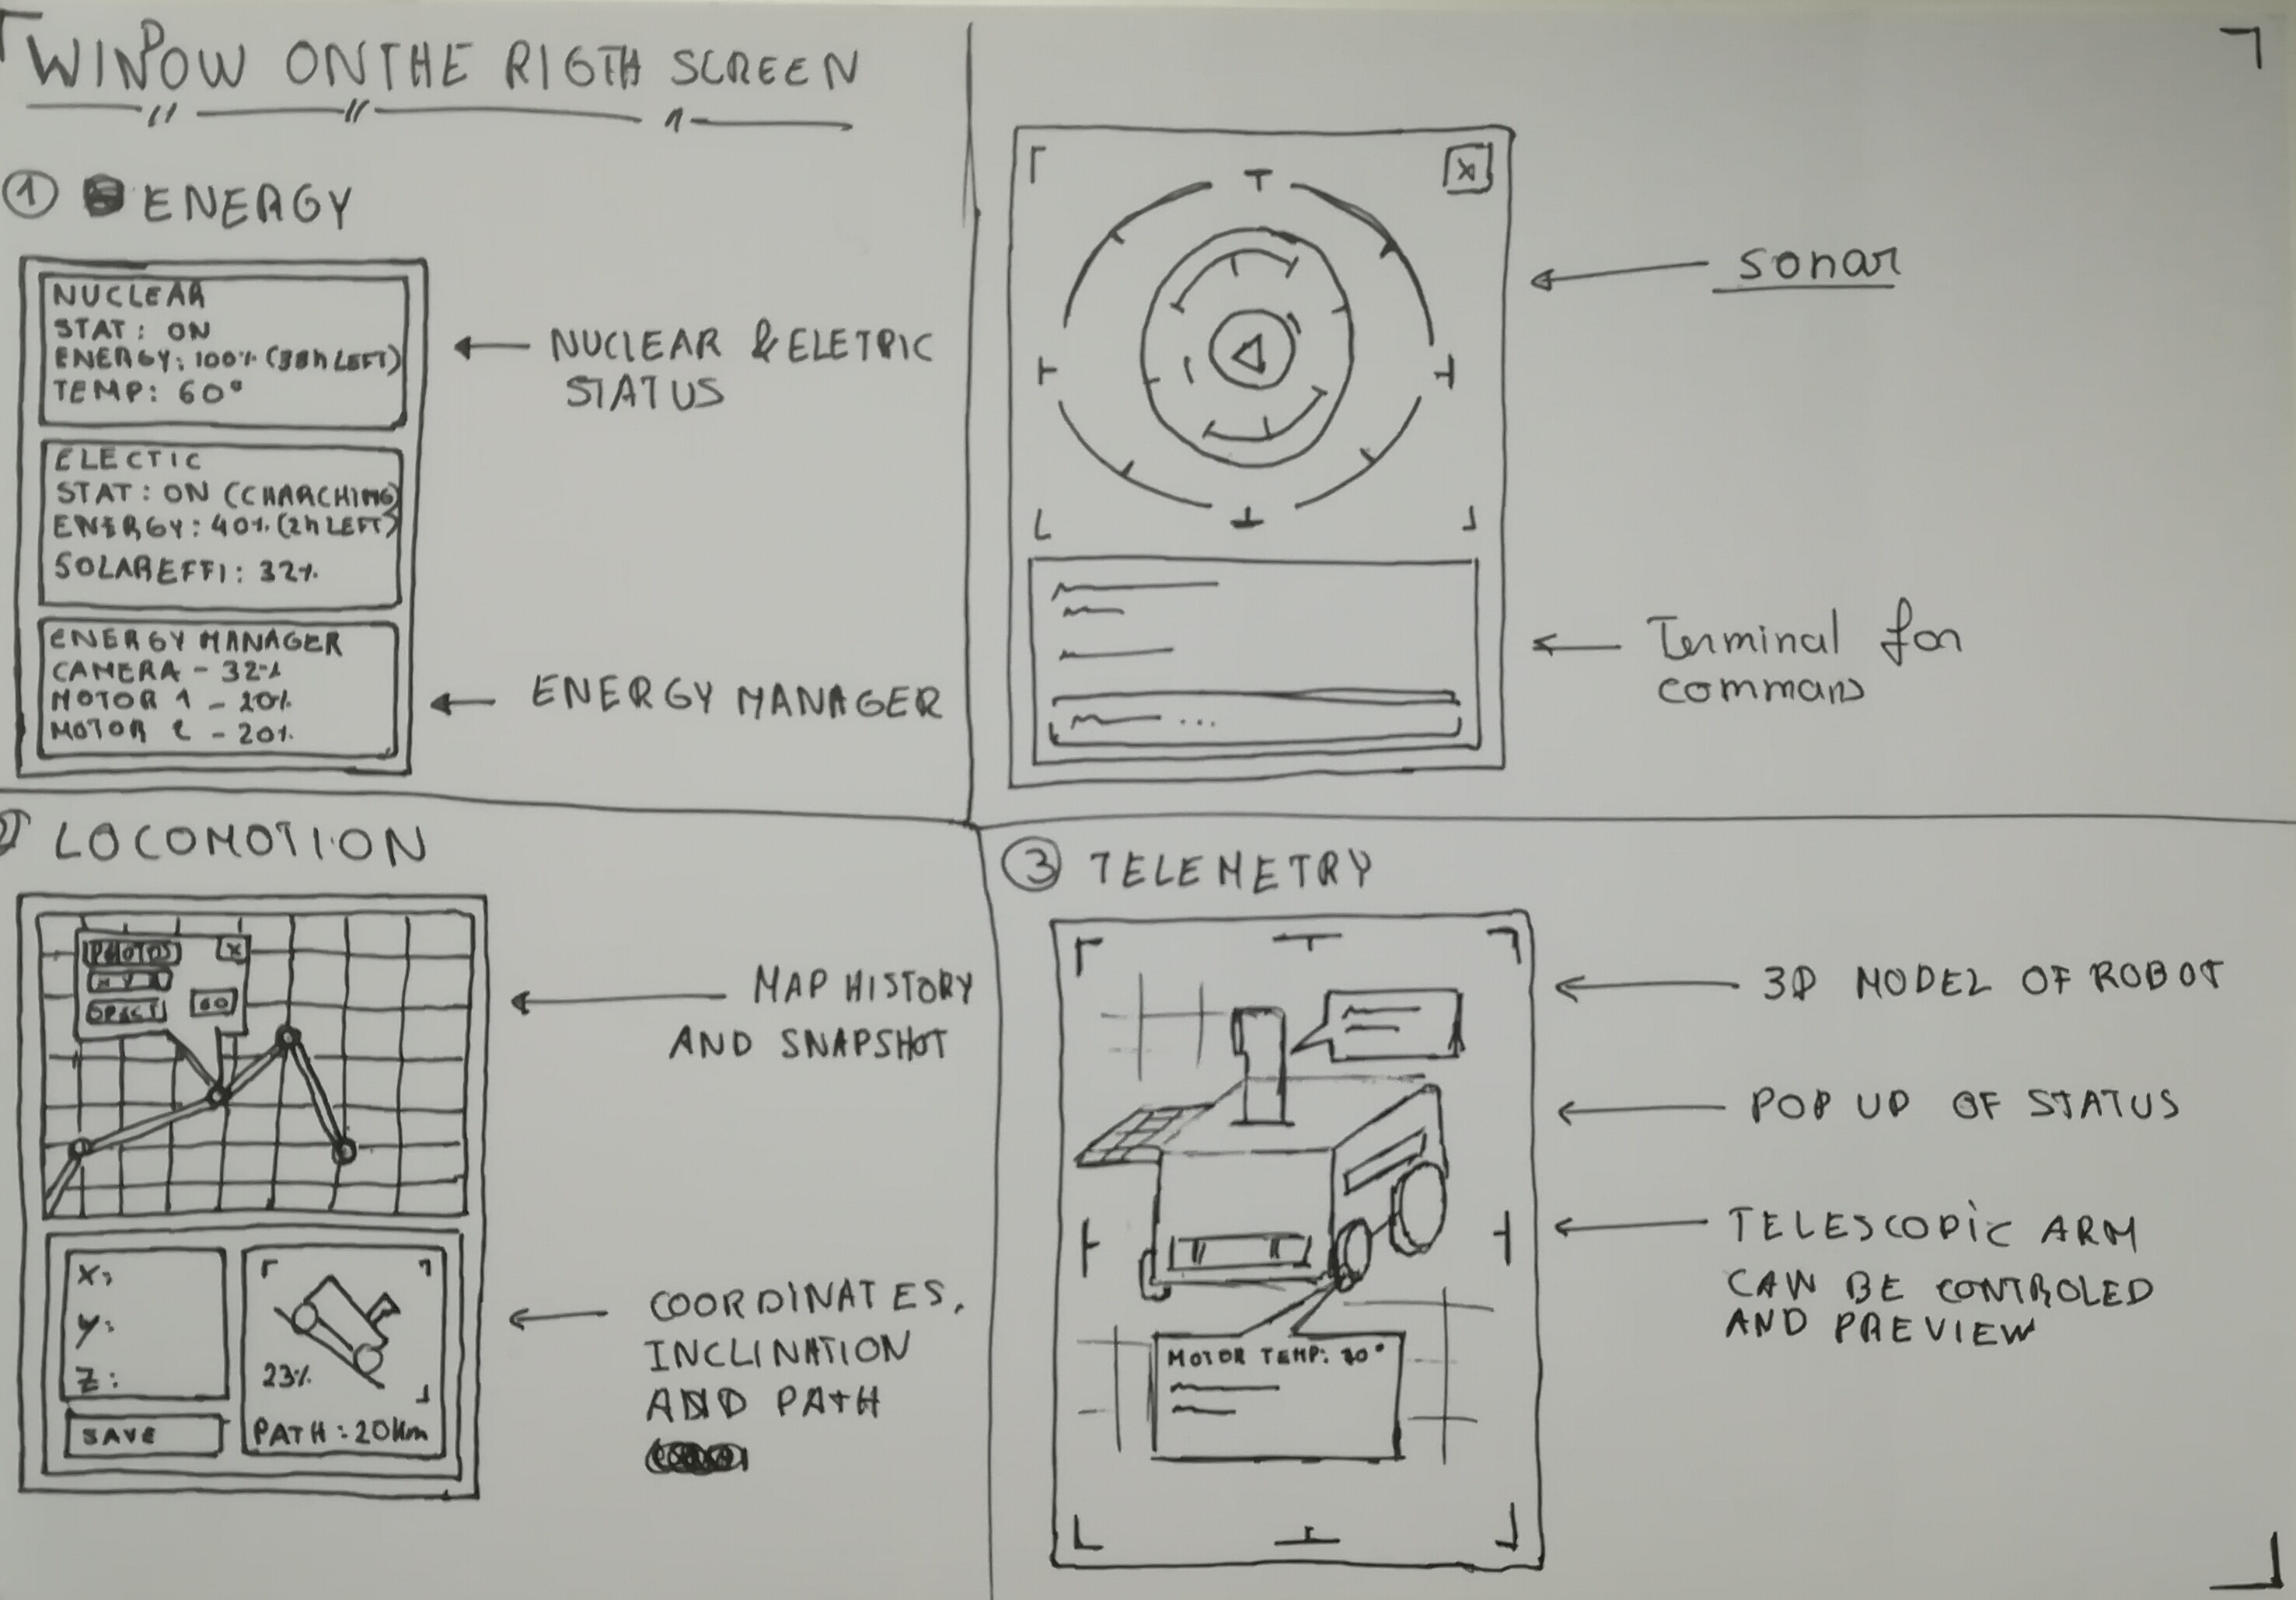 WINDOW ON THE RIGTH SCREEN
1 ENERGY
NUCLEAR
STAT: ON
ENERGY: 100% (38h LEFT)
TEMP: 60°
NUCLEAR & ELETRIC
STATUS
ELECTIC
STAT: ON (CHARCHING)
ENERGY: 40% (2h LEFT)
SOLAR EFFI: 32%
ENERGY MANAGER
CAMERA - 32%
MOTOR 1 - 20%
MOTOR 2 - 20%
ENERGY MANAGER
X
sonar
Terminal for
command
...
2 LOCOMOTION
PHOTOS
X
GO
MAP HISTORY
AND SNAPSHOT
X:
Y:
Z:
SAVE
23%
PATH: 20Km
COORDINATES,
INCLINATION
AND PATH
3 TELEMETRY
3D MODEL OF ROBOT
POP UP OF STATUS
TELESCOPIC ARM
CAN BE CONTROLED
AND PREVIEW
MOTOR TEMP: